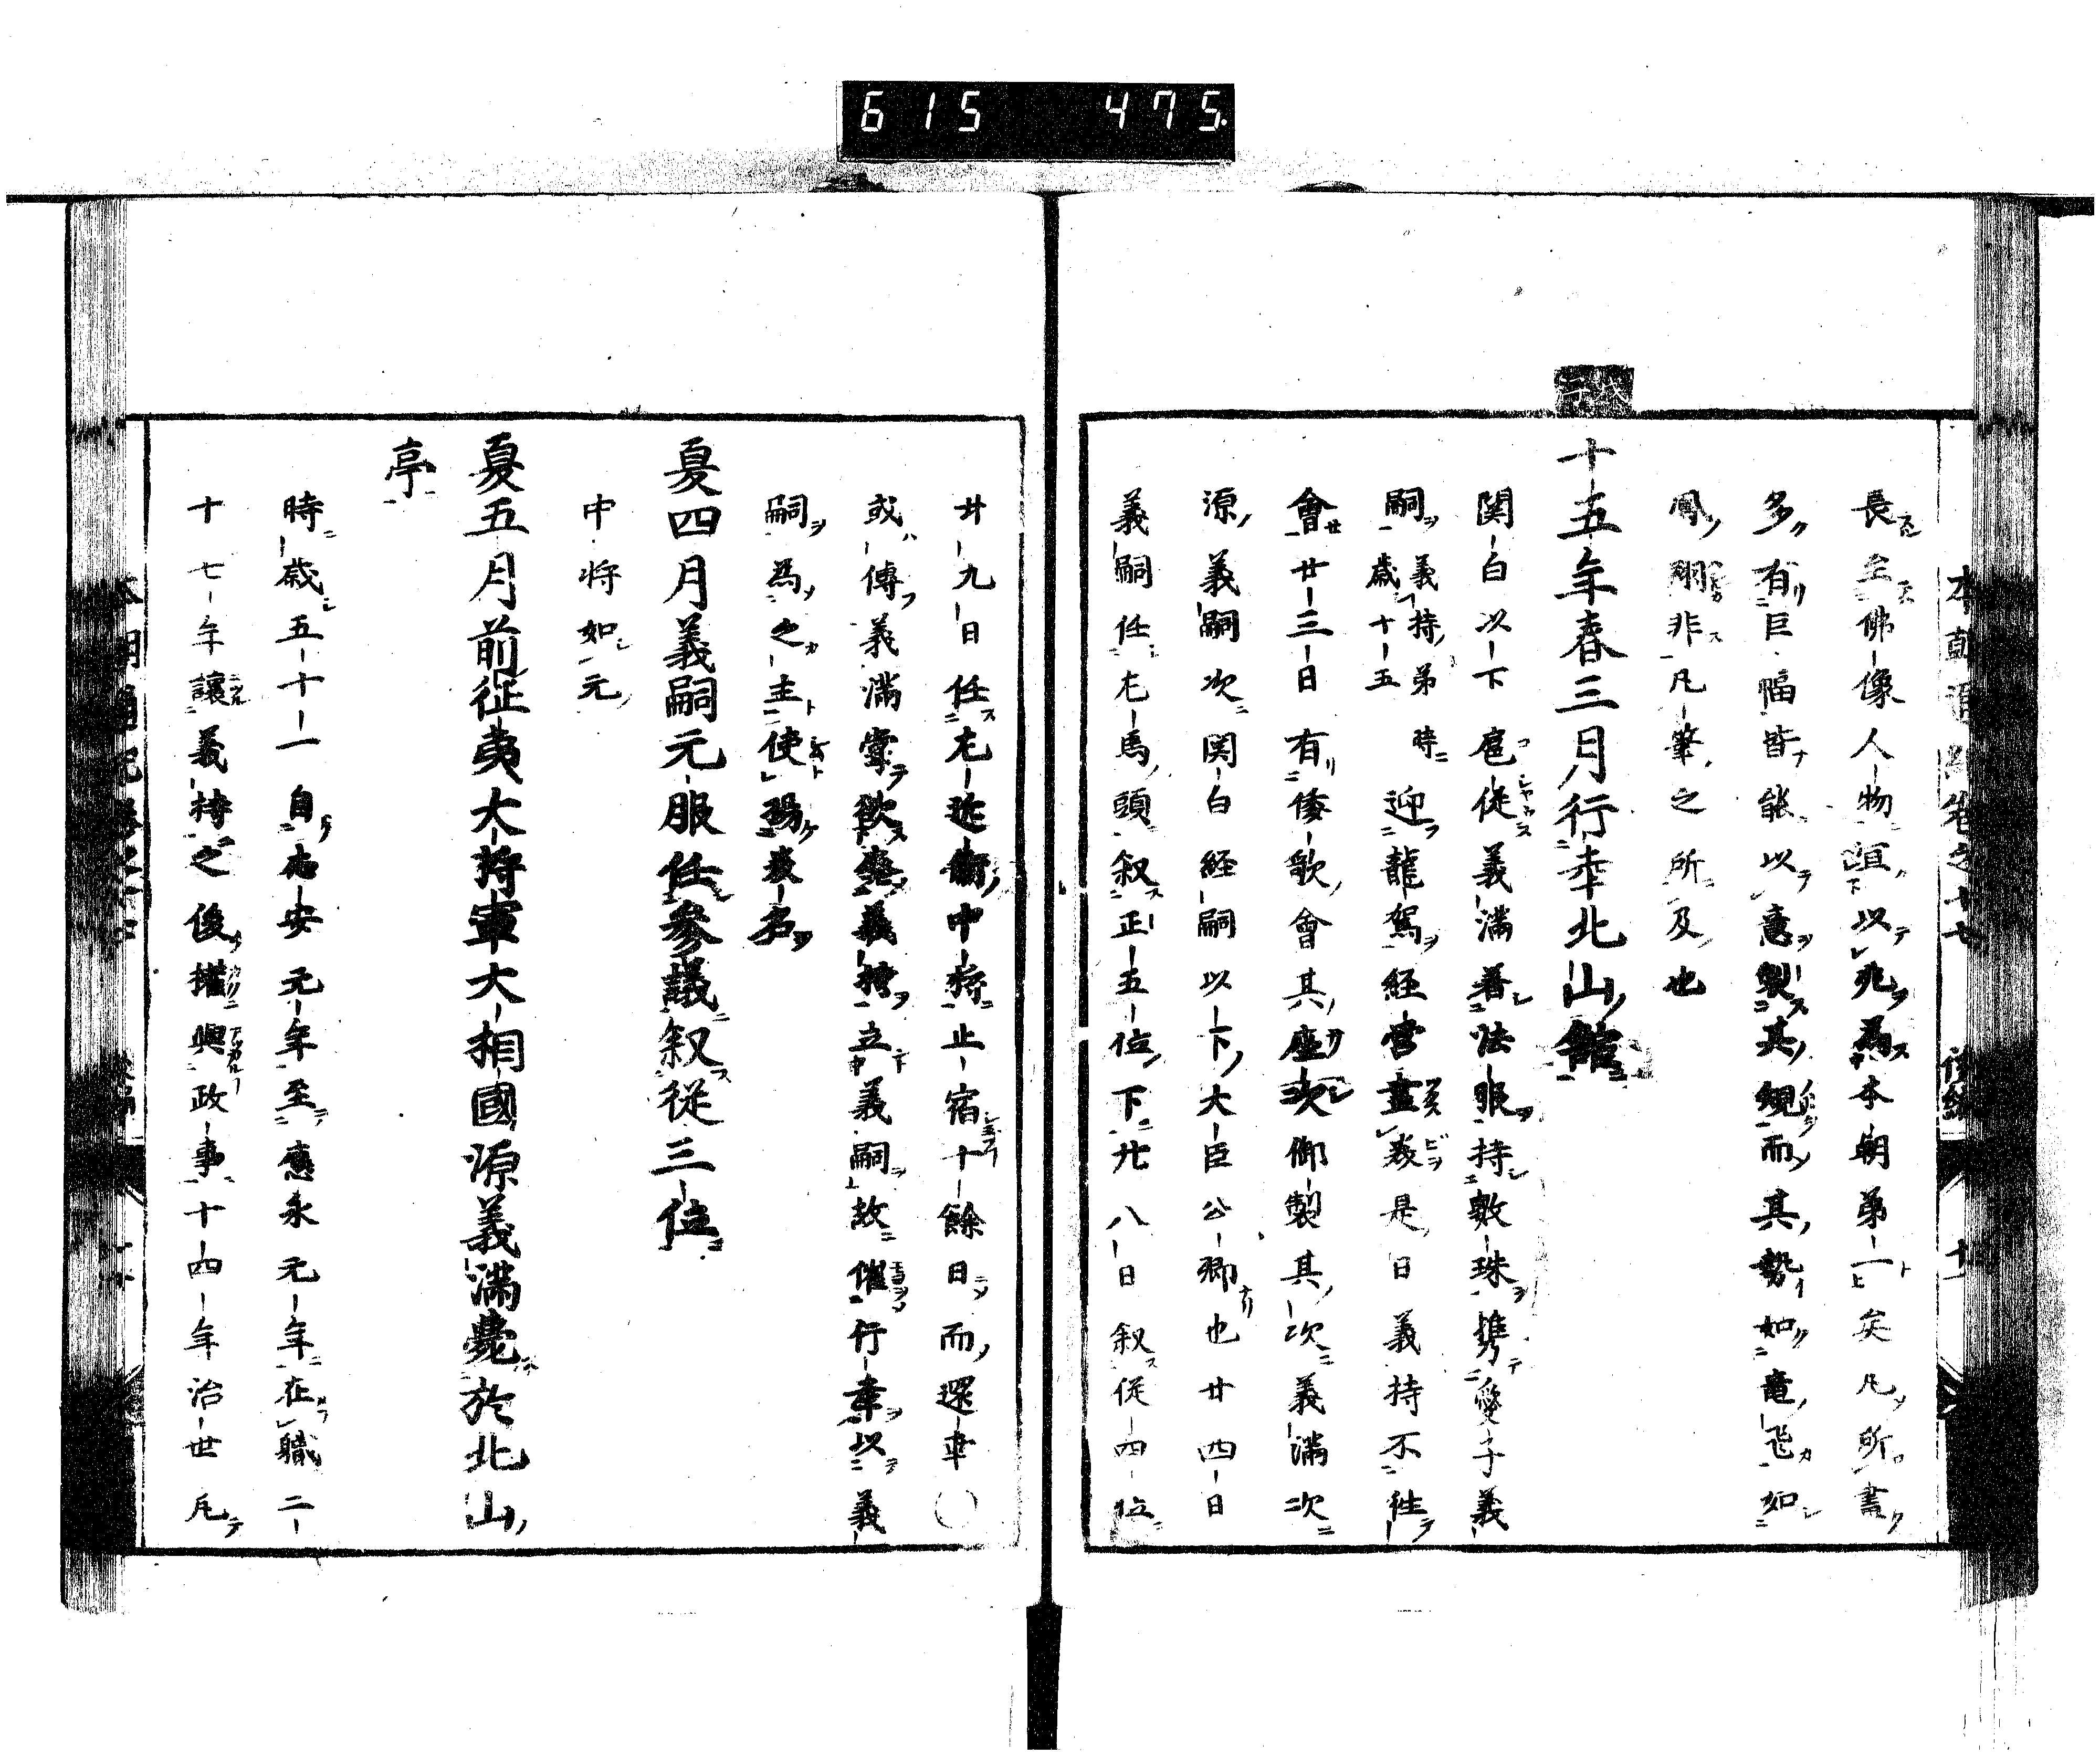 615 475.
長全佛像人物宜以兆為本朝第一矣凡所畫
多有巨幅皆能以意製其規而其勢如竜飛如
鳳翔非凡筆之所及也
十五年春三月行幸北山館
関白以下扈従義満着法服持數珠携愛子義
嗣義持弟時歳十五迎龍駕経営盡美是日義持不徃
會廿三日有倭歌會其座次御製其次義満次
源義嗣次関白経嗣以下大臣公卿也廿四日
義嗣任左馬頭叙正五位下廿八日叙従四位
廿九日任左近衛中将止宿十餘日而還幸〇
或傳義満常欲廢義持立義嗣故催行幸以義
嗣為之主使揚美名
夏四月義嗣元服任參議叙従三位
中将如元
夏五月前征夷大将軍大相國源義満薨於北山
亭
時歳五十一自應安元年至應永元年在職二
十七年讓義持之後權與政事十四年治世凡